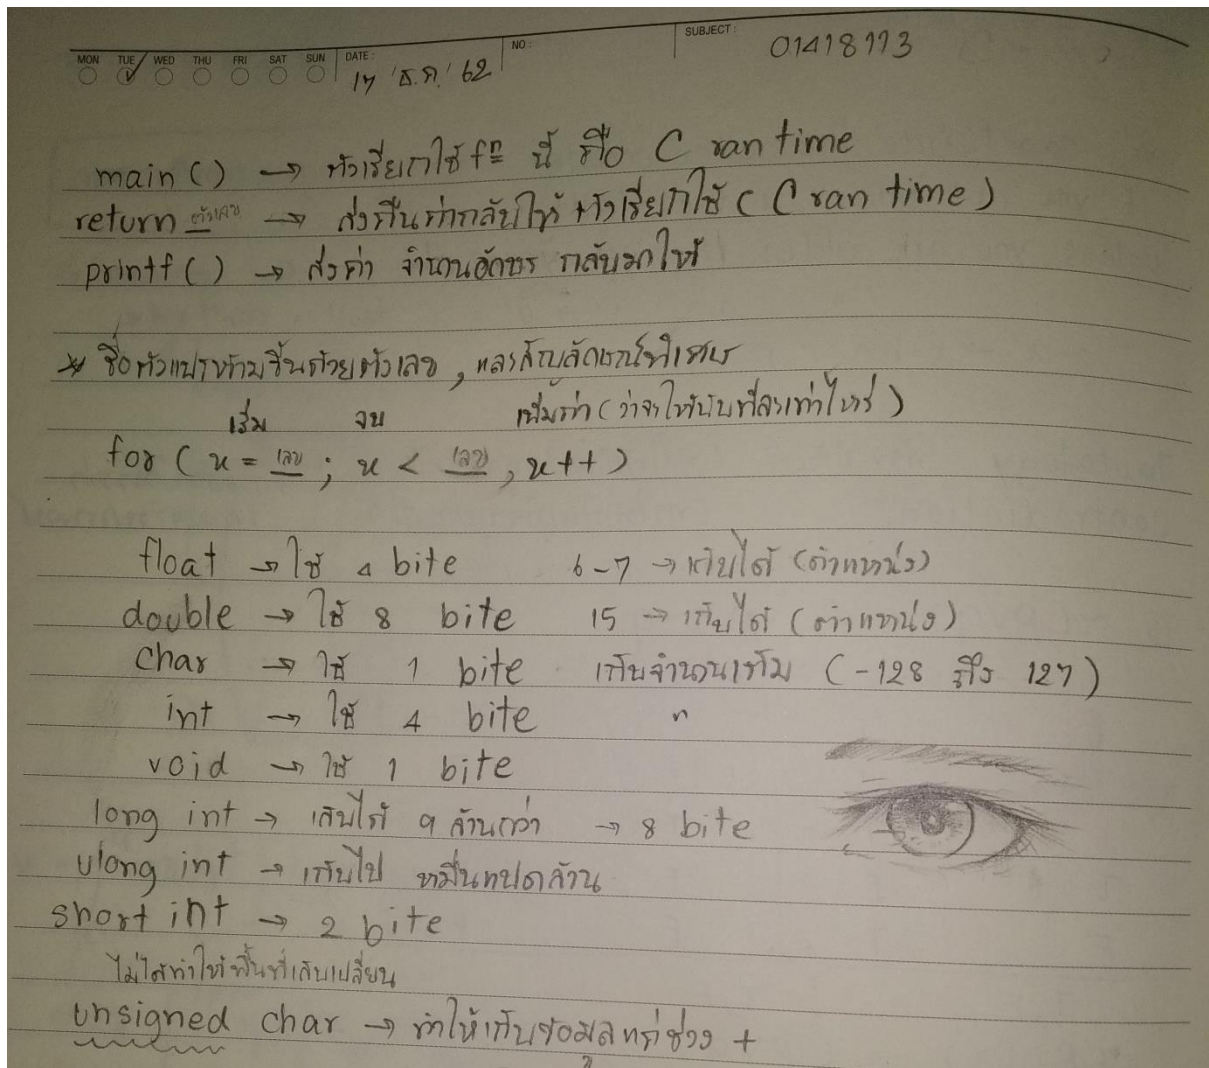 MON TUE WED THU FRI SAT SUN DATE: 17 ธ.ค. 62 NO.: SUBJECT: 01418113
main () → ตัวเรียกใช้ fⁿ นี้ คือ C ran time
return ตัวเลข → ส่งคืนค่ากลับให้ ตัวเรียกใช้ ( C ran time )
printf ( ) → ส่งค่า จำนวนอักขร กลับมาให้
* ชื่อตัวแปรห้ามขึ้นด้วยตัวเลข , และสัญลักษณ์พิเศษ
เริ่ม จบ เพิ่มค่า (ว่าจะให้นับทีละเท่าไหร่ )
for ( x = เลข ; x < เลข , x++ )
float → ใช้ 4 bite 6-7 → เก็บได้ (ตำแหน่ง)
double → ใช้ 8 bite 15 → เก็บได้ (ตำแหน่ง)
char → ใช้ 1 bite เก็บจำนวนเต็ม (-128 ถึง 127 )
int → ใช้ 4 bite "
void → ใช้ 1 bite
long int → เก็บได้ 9 ล้านกว่า → 8 bite
ulong int → เก็บไป หมื่นแปดล้าน
short int → 2 bite
ไม่ได้ทำให้พื้นที่เก็บเปลี่ยน
unsigned char → ทำให้เก็บข้อมูลแค่ช่วง +